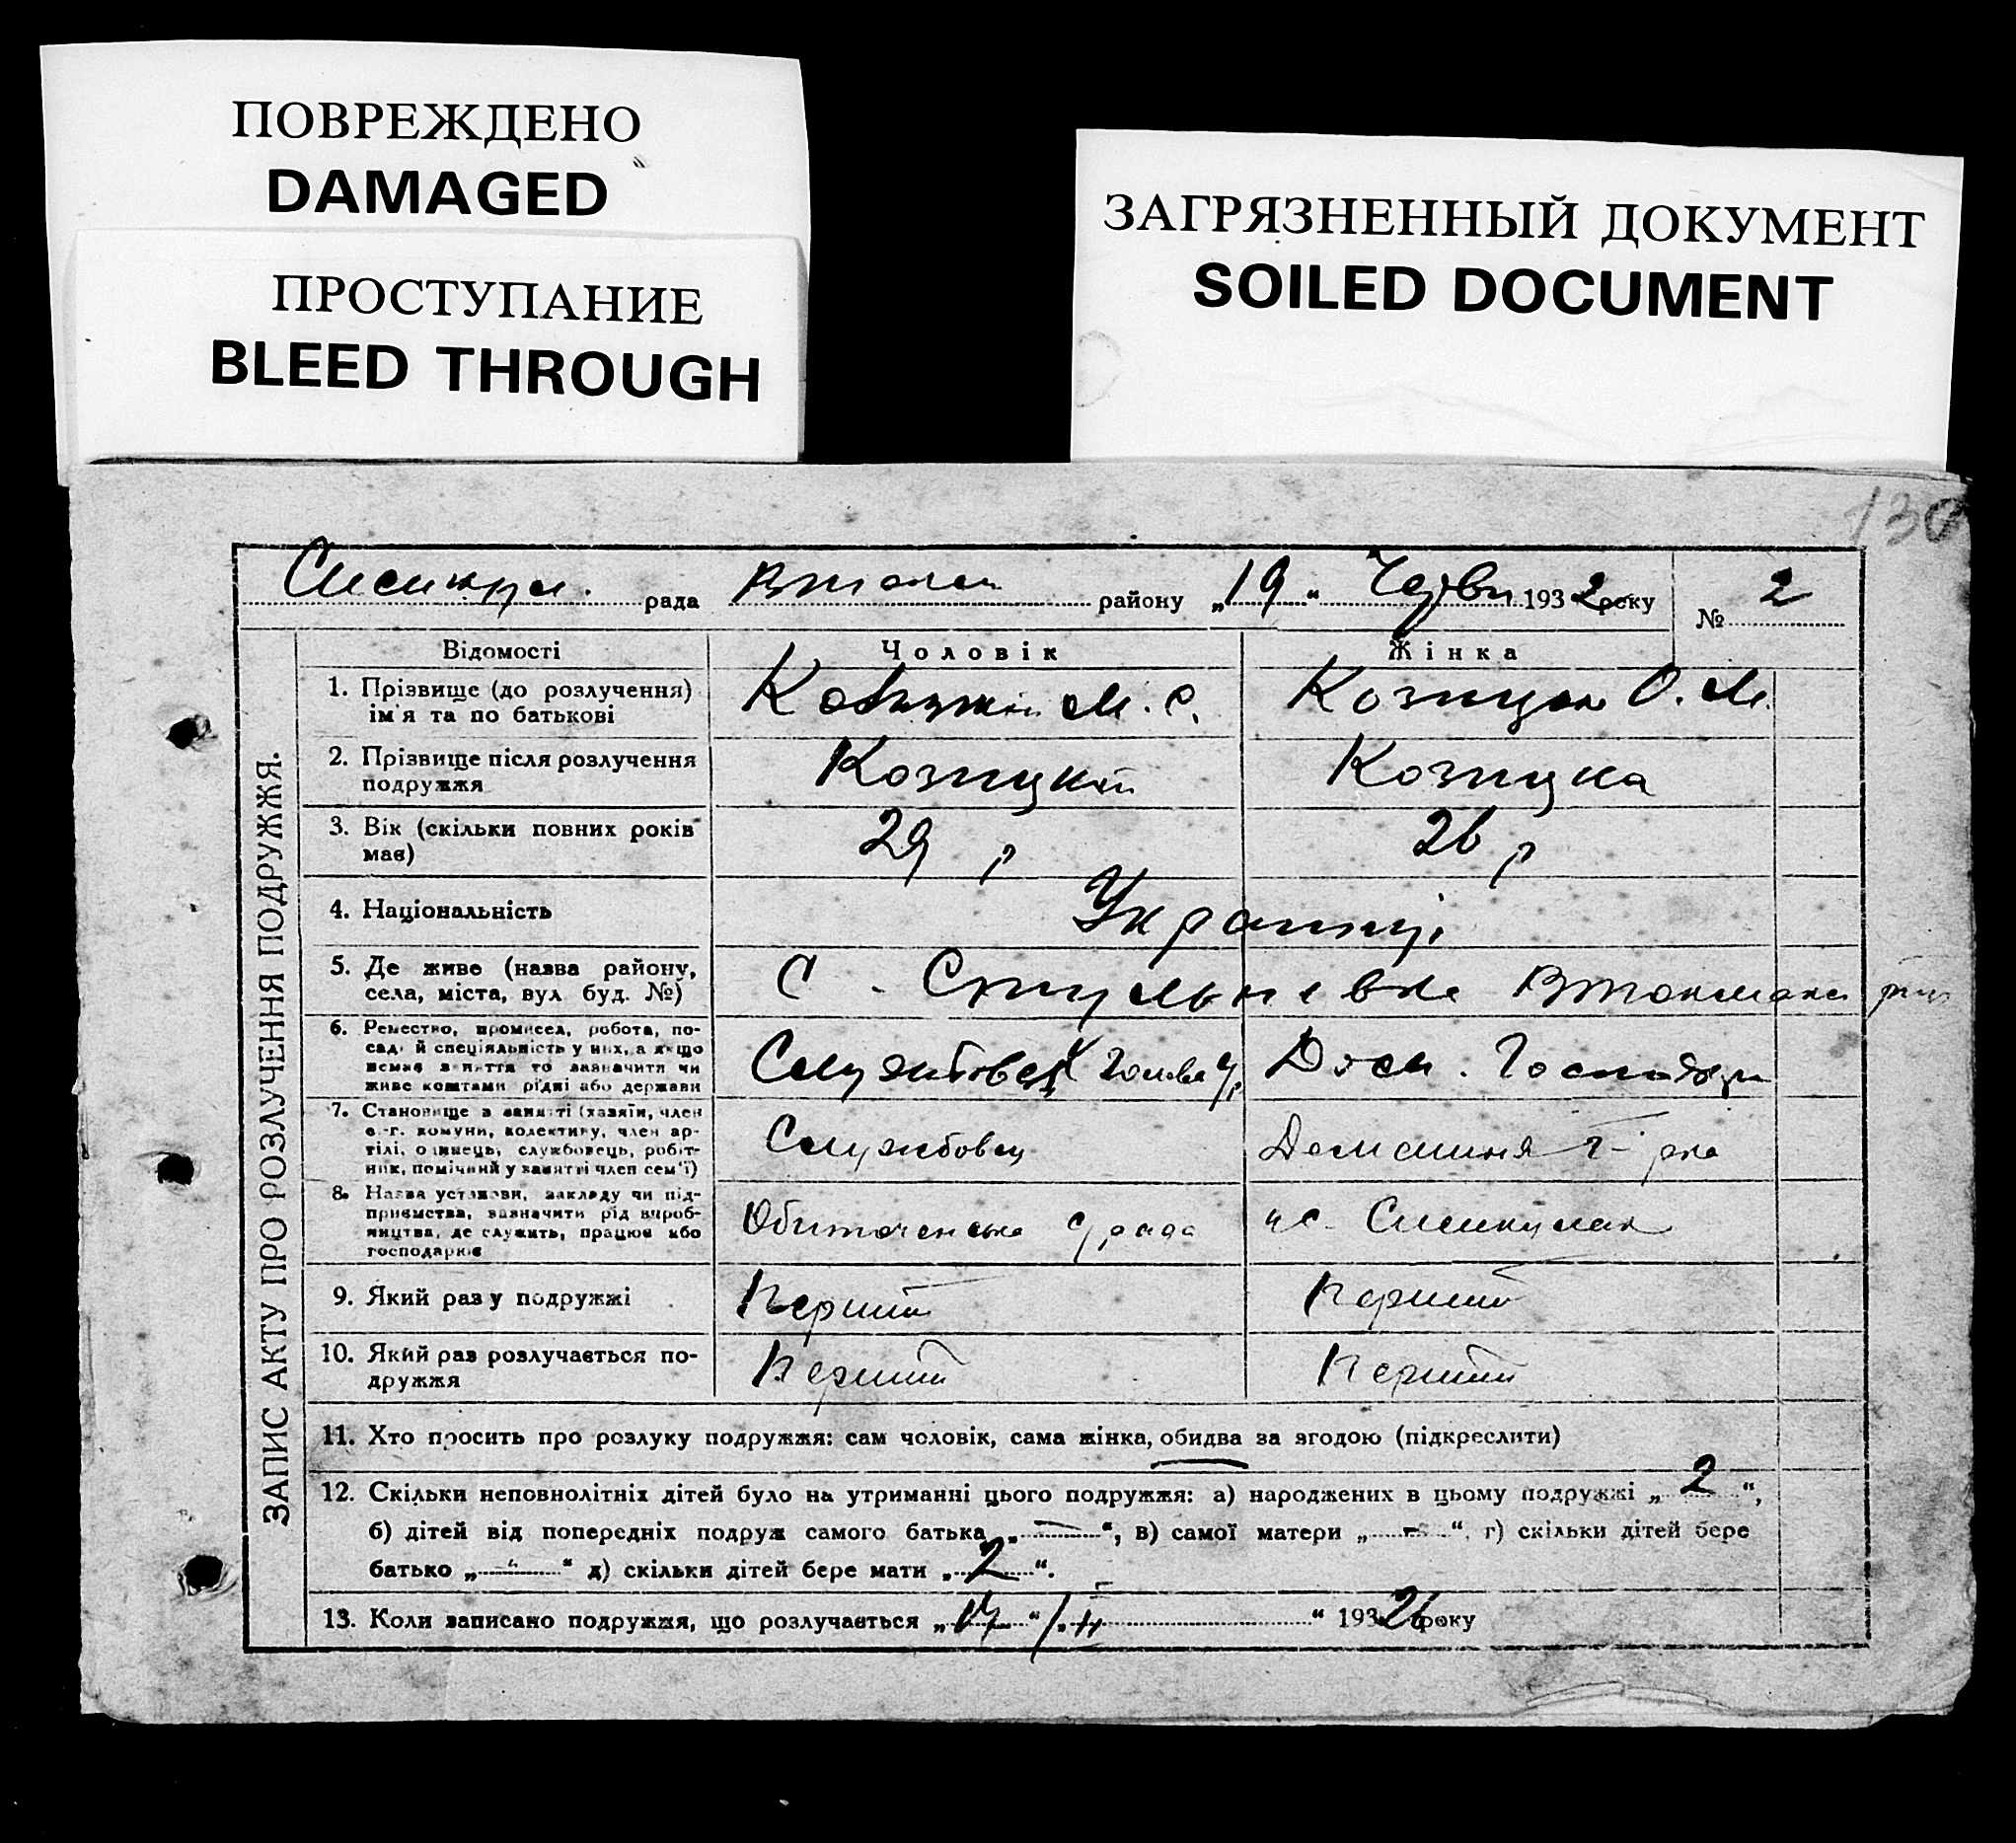 ПОВРЕЖДЕНО
DAMAGED
ПРОСТУПАНИЕ
BLEED THROUGH
ЗАГРЯЗНЕННЫЙ ДОКУМЕНТ
SOILED DOCUMENT
130
рада району „19“ 1932 року № 2
ЗАПИС АКТУ ПРО РОЗЛУЧЕННЯ ПОДРУЖЖЯ.
Відомості Чоловік Жінка
1. Прізвище (до розлучення) М. С. О. М.
ім'я та по батькові
2. Прізвище після розлучення Козицкій Козицка
подружжя
3. Вік (скільки повних років 29 р 26 р
має)
4. Національність Українці
5. Де живе (назва району, С.
села, міста, вул буд. №)
6. Ремество, промисел, робота, по- Службовець Голова Дом.
саду й спеціяльність у них, а якщо
немає заняття то зазначити чи
живе коштами рідні або держави
7. Становище в занятті (хазяїн, член Службовец Домашня
с.-г. комуни, колективу, член ар-
тілі, одинець, службовець, робіт-
ник, помічний у занятті член сем'ї)
8. Назва установи, закладу чи під- Обиточенська с/рада
приємства, зазначити рід вироб-
ництва, де служить, працює або
господарює
9. Який раз у подружжі Перший Перший
10. Який раз розлучається по- Перший Перший
дружжя
11. Хто просить про розлуку подружжя: сам чоловік, сама жінка, обидва за згодою (підкреслити)
12. Скільки неповнолітніх дітей було на утриманні цього подружжя: а) народжених в цьому подружжі „2“,
б) дітей від попередніх подруж самого батька „—“, в) самої матери „—“, г) скільки дітей бере
батько „—“ д) скільки дітей бере мати „2“.
13. Коли записано подружжя, що розлучається „ “ 193 26 року